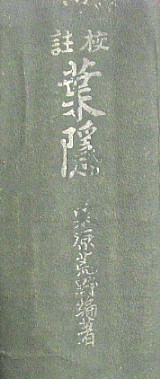 校註
葉隠
栗原荒野編著